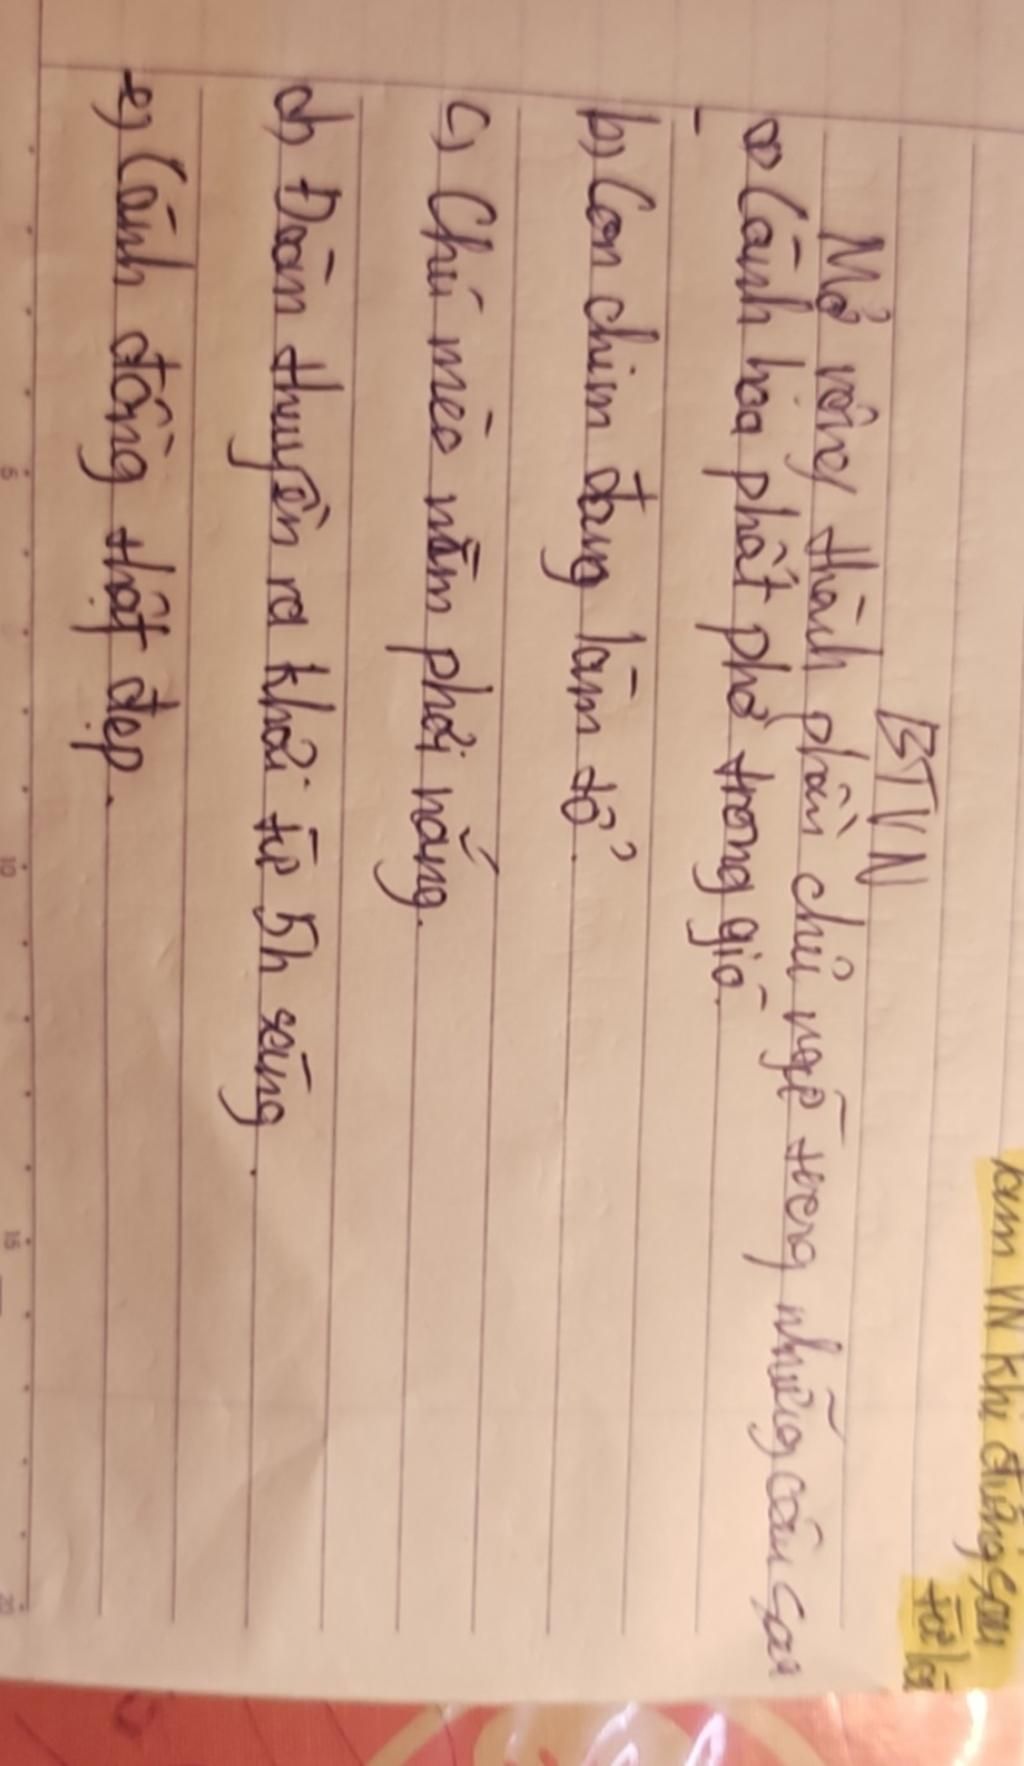 VN khi đứng sau
từ là
BTVN
Mở rộng thành phần chủ ngữ trong những câu sau
a) Cành hoa phất phơ trong gió.
b) Con chim đang làm tổ.
c) Chú mèo nằm phơi nắng.
d) Đoàn thuyền ra khơi từ 5h sáng.
e) Cánh đồng thật đẹp.
5
10
15
20